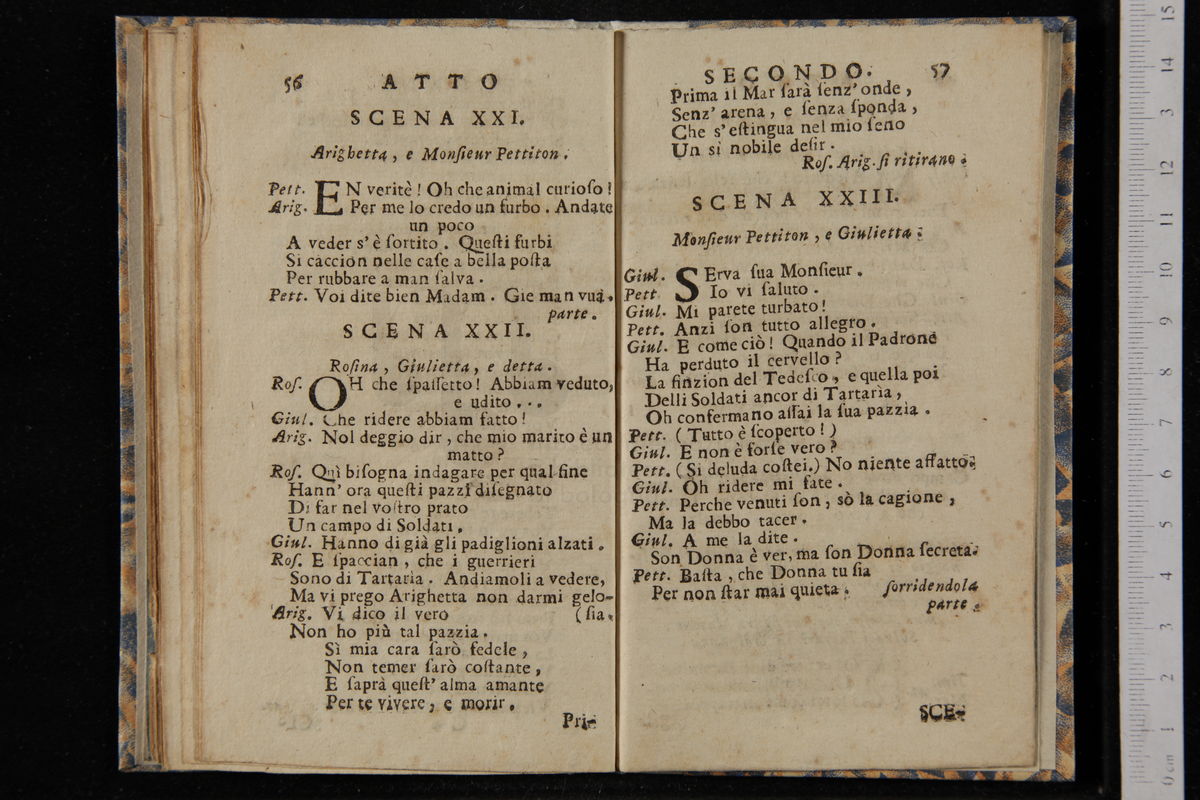 56 ATTO
SCENA XXI.
Arighetta, e Monſieur Pettiton.
Pett. EN veritè! Oh che animal curioſo!
Arig. Per me lo credo un furbo. Andate
un poco
A veder s'è ſortito. Queſti furbi
Si caccion nelle caſe a bella poſta
Per rubbare a man ſalva.
Pett. Voi dite bien Madam. Gie man vuà.
parte.
SCENA XXII.
Roſina, Giulietta, e detta.
Roſ. OH che ſpaſſetto! Abbiam veduto,
e udito...
Giul. Che ridere abbiam fatto!
Arig. Nol deggio dir, che mio marito è un
matto?
Roſ. Quì biſogna indagare per qual fine
Hann' ora queſti pazzi diſegnato
Di far nel voſtro prato
Un campo di Soldati.
Giul. Hanno di già gli padiglioni alzati.
Roſ. E ſpaccian, che i guerrieri
Sono di Tartaria. Andiamoli a vedere,
Ma vi prego Arighetta non darmi gelo-
Arig. Vi dico il vero (ſia.
Non ho più tal pazzia.
Sì mia cara ſarò fedele,
Non temer ſarò coſtante,
E ſaprà queſt' alma amante
Per te vivere, e morir.
Pri-
SECONDO. 57
Prima il Mar ſarà ſenz' onde,
Senz' arena, e ſenza ſponda,
Che s' eſtingua nel mio ſeno
Un sì nobile deſir.
Roſ. Arig. ſi ritirano.
SCENA XXIII.
Monſieur Pettiton, e Giulietta.
Giul. SErva ſua Monſieur.
Pett Io vi ſaluto.
Giul. Mi parete turbato!
Pett. Anzi ſon tutto allegro.
Giul. E come ciò! Quando il Padrone
Ha perduto il cervello?
La finzion del Tedeſco, e quella poi
Delli Soldati ancor di Tartaria,
Oh confermano aſſai la ſua pazzia.
Pett. (Tutto è ſcoperto!)
Giul. E non è forſe vero?
Pett. (Si deluda coſtei.) No niente affatto.
Giul. Oh ridere mi fate.
Pett. Perche venuti ſon, sò la cagione,
Ma la debbo tacer.
Giul. A me la dite.
Son Donna è ver, ma ſon Donna ſecreta.
Pett. Baſta, che Donna tu ſia
Per non ſtar mai quieta. ſorridendola
parte.
SCE-
15
14
3
12
11
10
9
8
7
6
5
4
3
2
1
0 cm